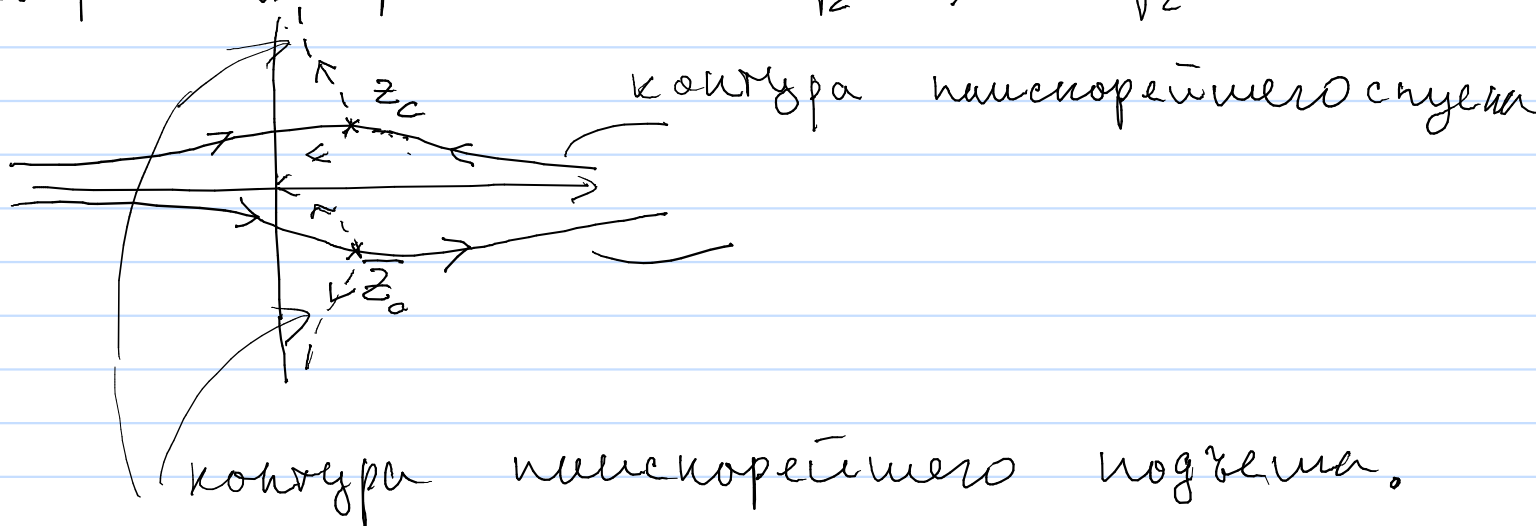 z_c
контура наискорейшего спуска
z̅_a
контура наискорейшего подъема.